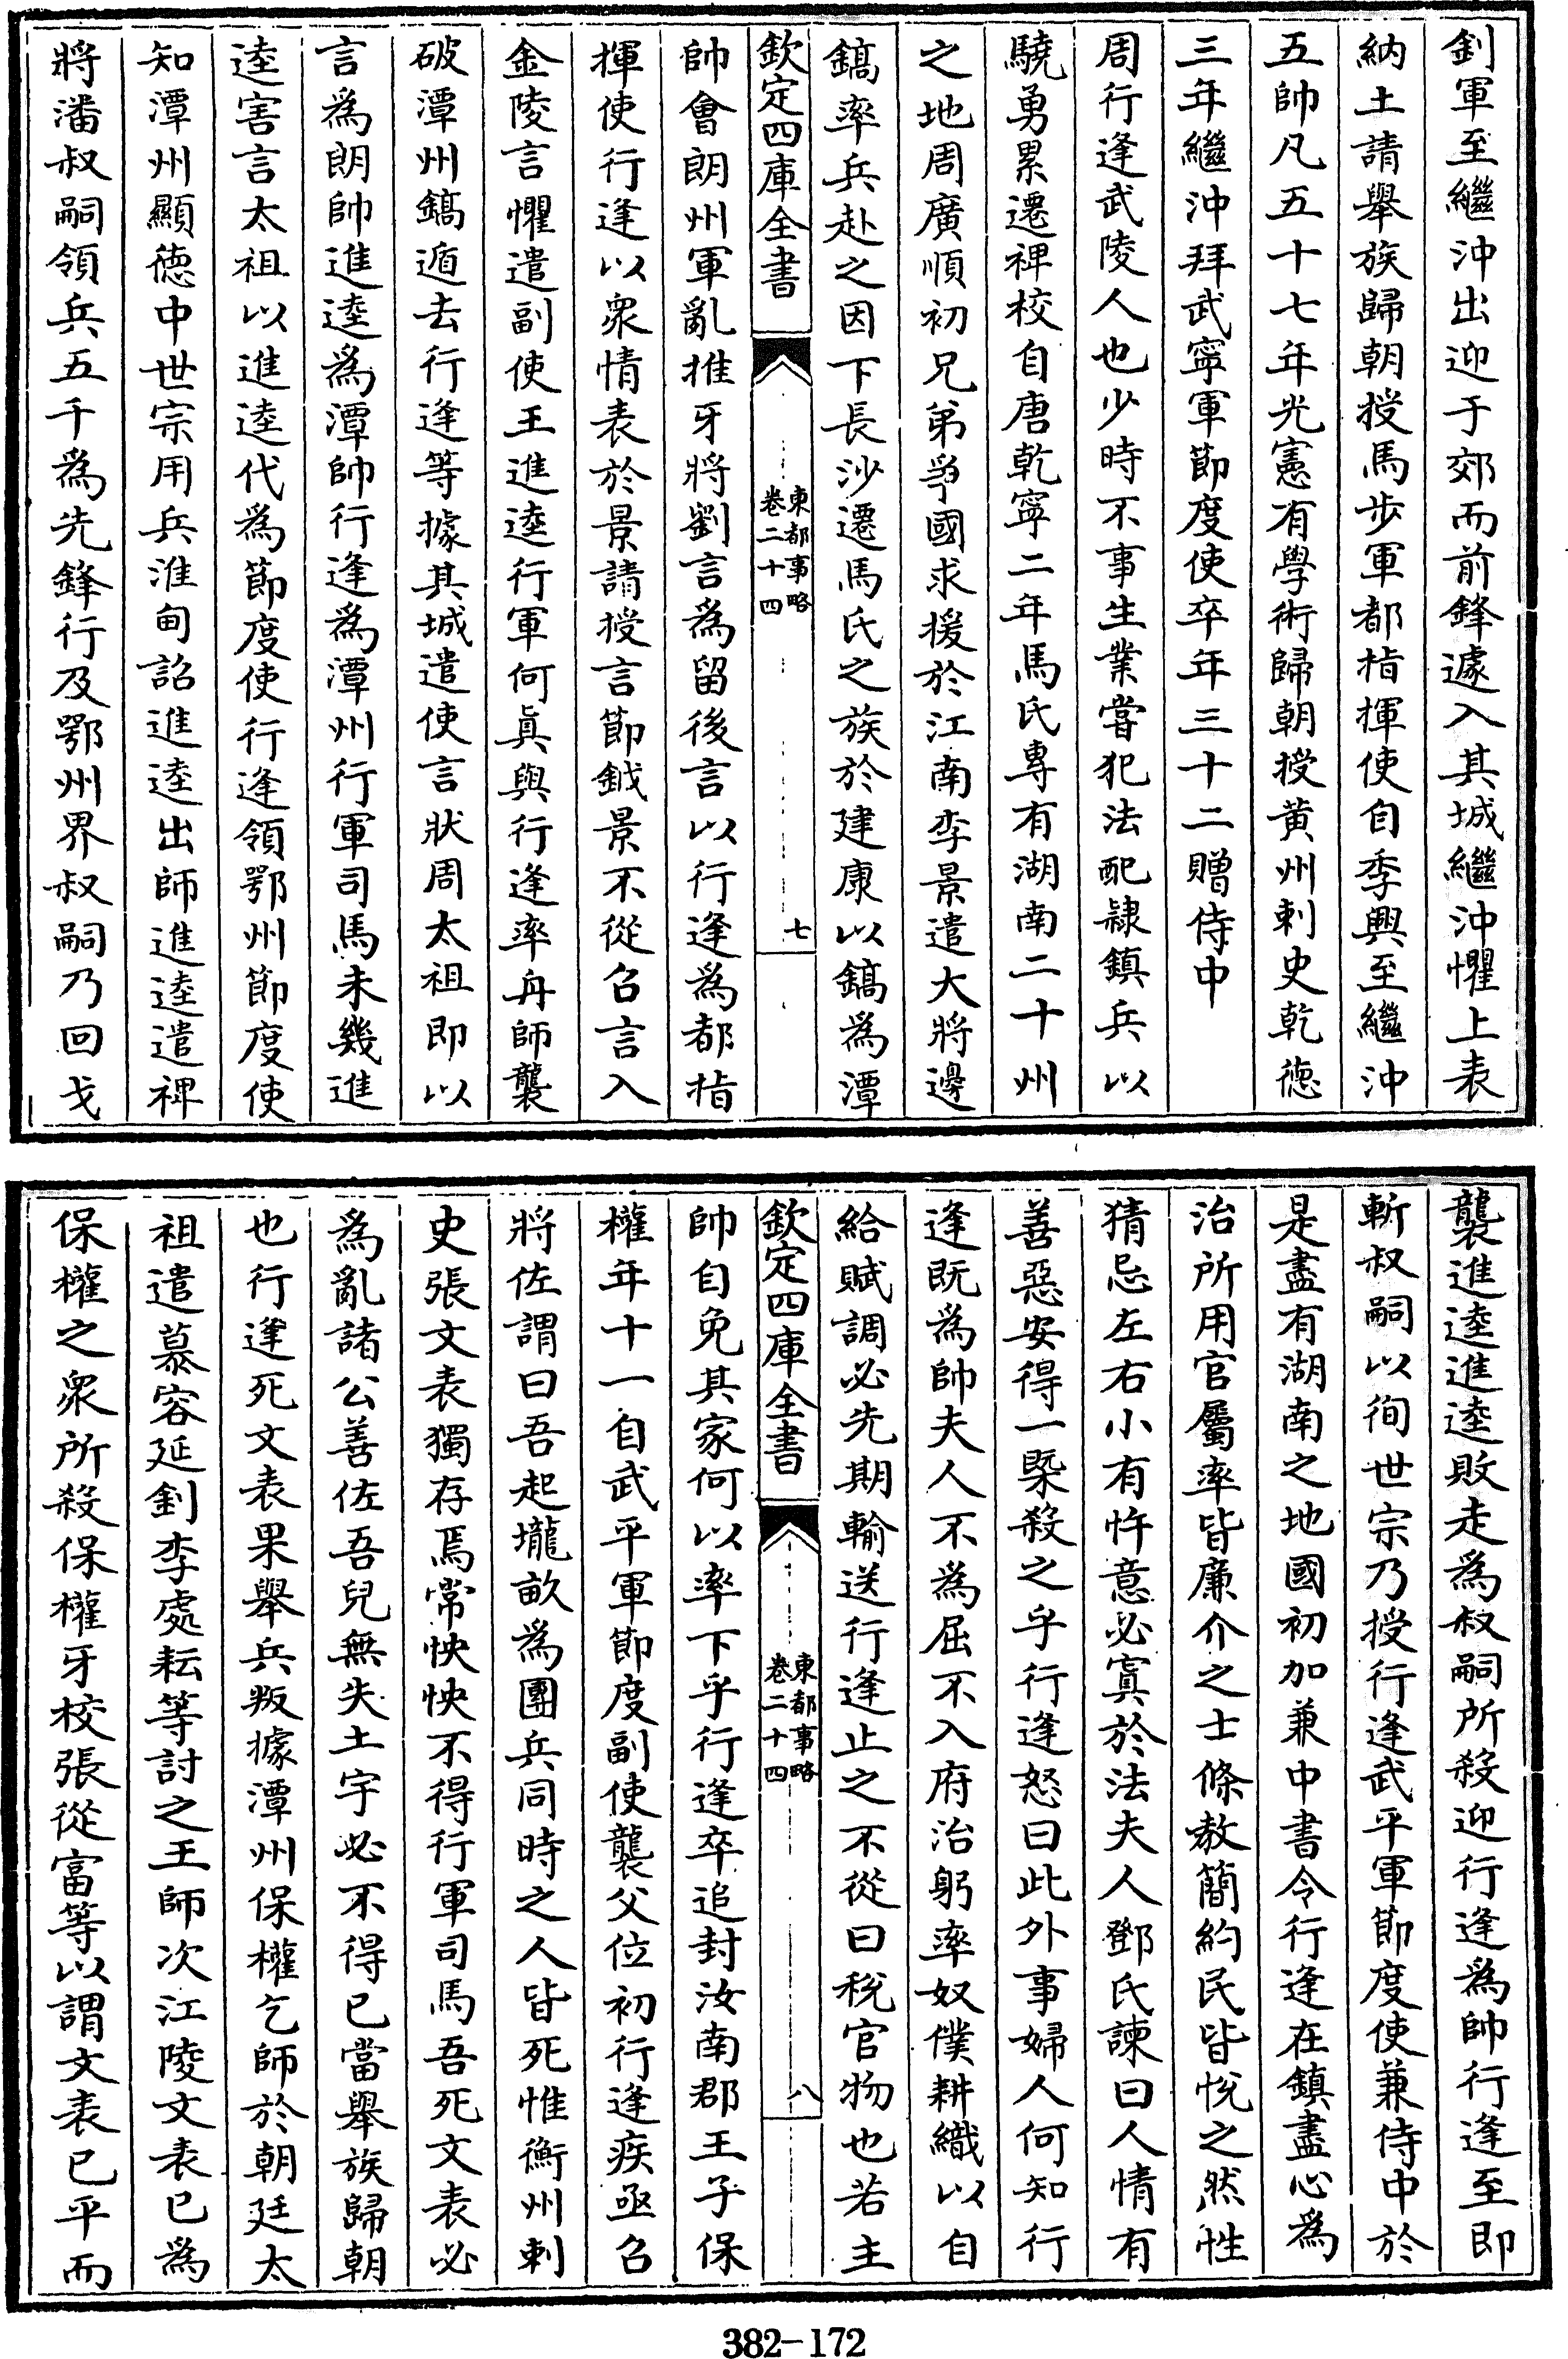 釗軍至繼沖出迎于郊而前鋒遽入其城繼沖懼上表
納土請舉族歸朝授馬步軍都指揮使自季興至繼沖
五帥凡五十七年光憲有學術歸朝授黃州刺史乾德
三年繼沖拜武寧軍節度使卒年三十二贈侍中
周行逢武陵人也少時不事生業嘗犯法配隸鎮兵以
驍勇累遷裨校自唐乾寧二年馬氏專有湖南二十州
之地周廣順初兄弟爭國求援於江南李景遣大將邊
鎬率兵赴之因下長沙遷馬氏之族於建康以鎬為潭
欽定四庫全書
東都事略
卷二十四
七
帥會朗州軍亂推牙將劉言為留後言以行逢為都指
揮使行逢以衆情表於景請授言節鉞景不從召言入
金陵言懼遣副使王進逵行軍何真與行逢率舟師襲
破潭州鎬遁去行逢等據其城遣使言狀周太祖即以
言為朗帥進逵為潭帥行逢為潭州行軍司馬未幾進
逵害言太祖以進逵代為節度使行逢領鄂州節度使
知潭州顯德中世宗用兵淮甸詔進逵出師進逵遣裨
將潘叔嗣領兵五千為先鋒行及鄂州界叔嗣乃回戈
襲進逵進逵敗走為叔嗣所殺迎行逢為帥行逢至即
斬叔嗣以徇世宗乃授行逢武平軍節度使兼侍中於
是盡有湖南之地國初加兼中書令行逢在鎮盡心為
治所用官屬率皆廉介之士條教簡約民皆悅之然性
猜忌左右小有忤意必寘於法夫人鄧氏諫曰人情有
善惡安得一槩殺之乎行逢怒曰此外事婦人何知行
逢既為帥夫人不為屈不入府治躬率奴僕耕織以自
給賦調必先期輸送行逢止之不從曰稅官物也若主
欽定四庫全書
東都事略
卷二十四
八
帥自免其家何以率下乎行逢卒追封汝南郡王子保
權年十一自武平軍節度副使襲父位初行逢疾亟召
將佐謂曰吾起壠畝為團兵同時之人皆死惟衡州刺
史張文表獨存焉常怏怏不得行軍司馬吾死文表必
為亂諸公善佐吾兒無失土宇必不得已當舉族歸朝
也行逢死文表果舉兵叛據潭州保權乞師於朝廷太
祖遣慕容延釗李處耘等討之王師次江陵文表已為
保權之衆所殺保權牙校張從富等以謂文表已平而
382-172